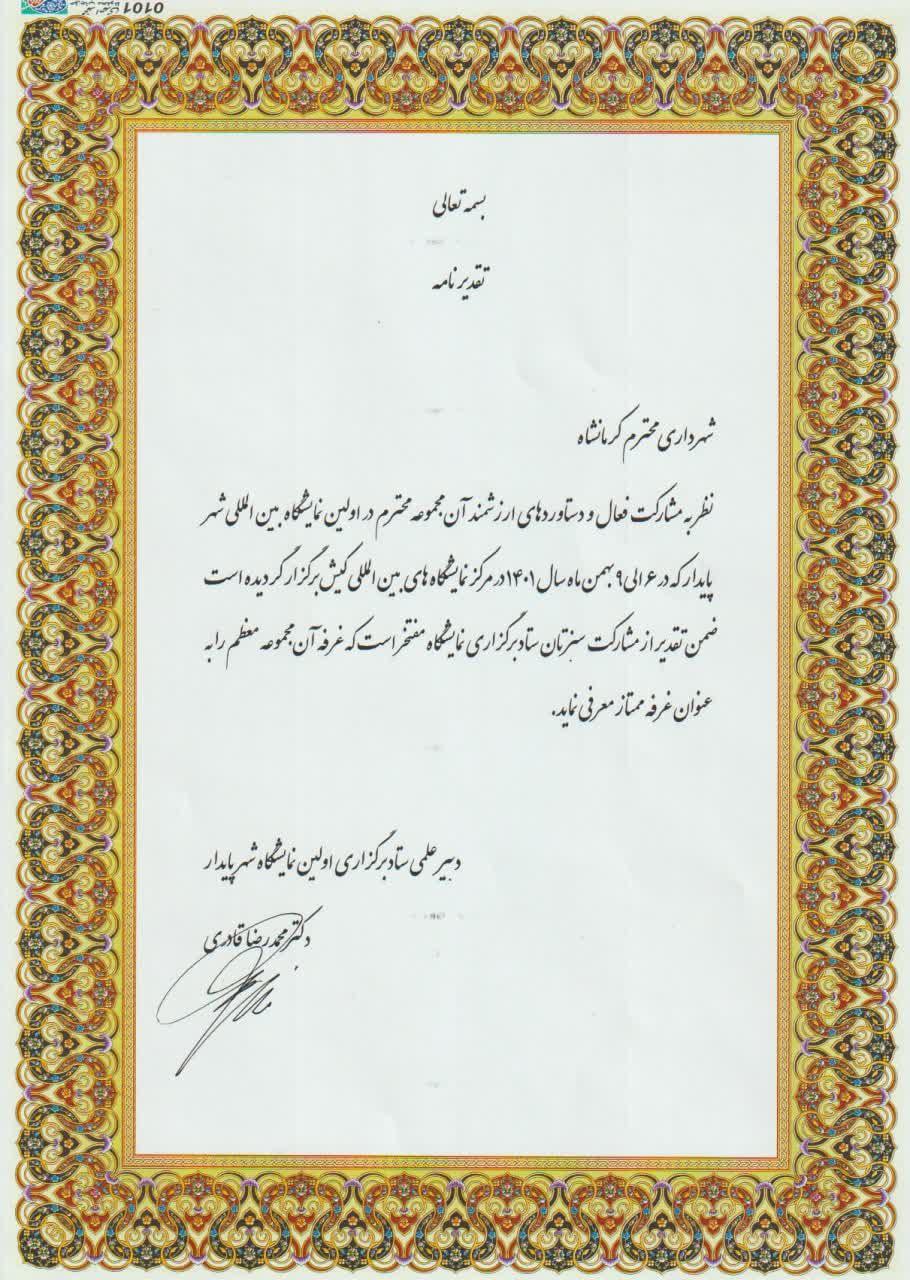 0101
بسمه تعالی
تقدیر نامه
شهرداری محترم کرمانشاه
نظر به مشارکت فعال و دستاوردهای ارزشمند آن مجموعه محترم در اولین نمایشگاه بین المللی شهر
پایدار که در ۶ الی ۹ بهمن ماه سال ۱۴۰۱ در مرکز نمایشگاه های بین المللی کیش برگزار گردیده است
ضمن تقدیر از مشارکت سبزتان ستاد برگزاری نمایشگاه مفتخر است که غرفه آن مجموعه معظم را به
عنوان غرفه ممتاز معرفی نماید.
دبیر علمی ستاد برگزاری اولین نمایشگاه شهر پایدار
دکتر محمدرضا قادری